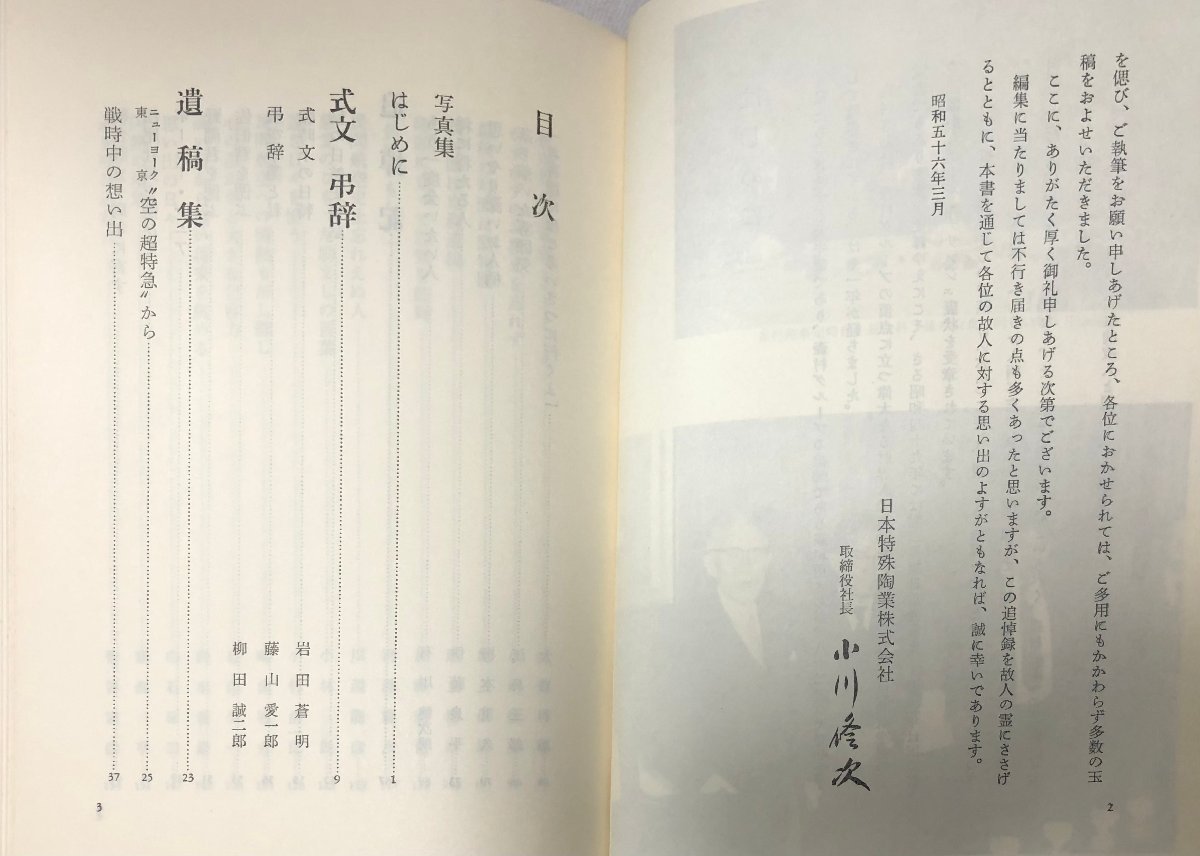 を偲び、ご執筆をお願い申しあげたところ、各位におかせられては、ご多用にもかかわらず多数の玉
稿をおよせいただきました。
ここに、ありがたく厚く御礼申しあげる次第でございます。
編集に当たりましては不行き届きの点も多くあったと思いますが、この追悼録を故人の霊にささげ
るとともに、本書を通じて各位の故人に対する思い出のよすがともなれば、誠に幸いであります。
昭和五十六年三月
日本特殊陶業株式会社
取締役社長 小川修次
2
目次
写真集
はじめに……1
式文 弔辞……9
式文 岩田蒼明
弔辞 藤山愛一郎
柳田誠二郎
遺稿集……23
ニューヨーク
東京 〝空の超特急〟から……25
戦時中の想い出……37
3